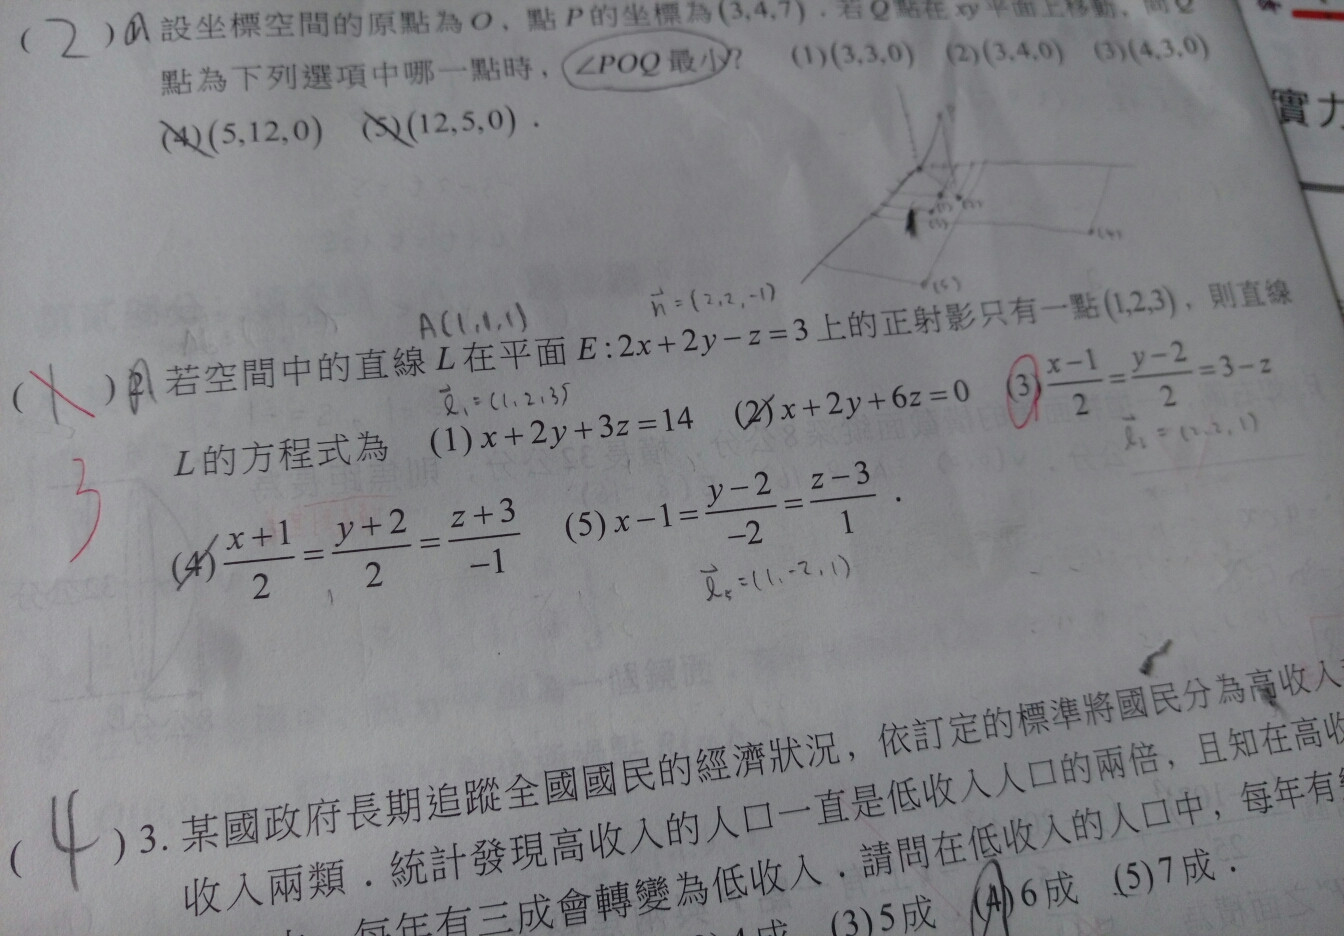 (2) 設坐標空間的原點為O，點P的坐標為(3,4,7)．若Q點在xy平面上移動，問Q
點為下列選項中哪一點時，∠POQ最小？ (1)(3,3,0) (2)(3,4,0) (3)(4,3,0)
(4)(5,12,0) (5)(12,5,0)．
實力
A(1,1,1) n=(2,2,-1)
(1) 若空間中的直線L在平面E:2x+2y-z=3上的正射影只有一點(1,2,3)，則直線
3 L的方程式為 (1)x+2y+3z=14 (2)x+2y+6z=0 (3)(x-1)/2=(y-2)/2=3-z
l₁=(1,2,3)
(4)(x+1)/2=(y+2)/2=(z+3)/-1 (5)x-1=(y-2)/-2=(z-3)/1．
l₅=(1,-2,1)
(4)3.某國政府長期追蹤全國國民的經濟狀況，依訂定的標準將國民分為高收入
收入兩類．統計發現高收入的人口一直是低收入人口的兩倍，且知在高收
每年有三成會轉變為低收入．請問在低收入的人口中，每年有
(3)5成 (4)6成 (5)7成．